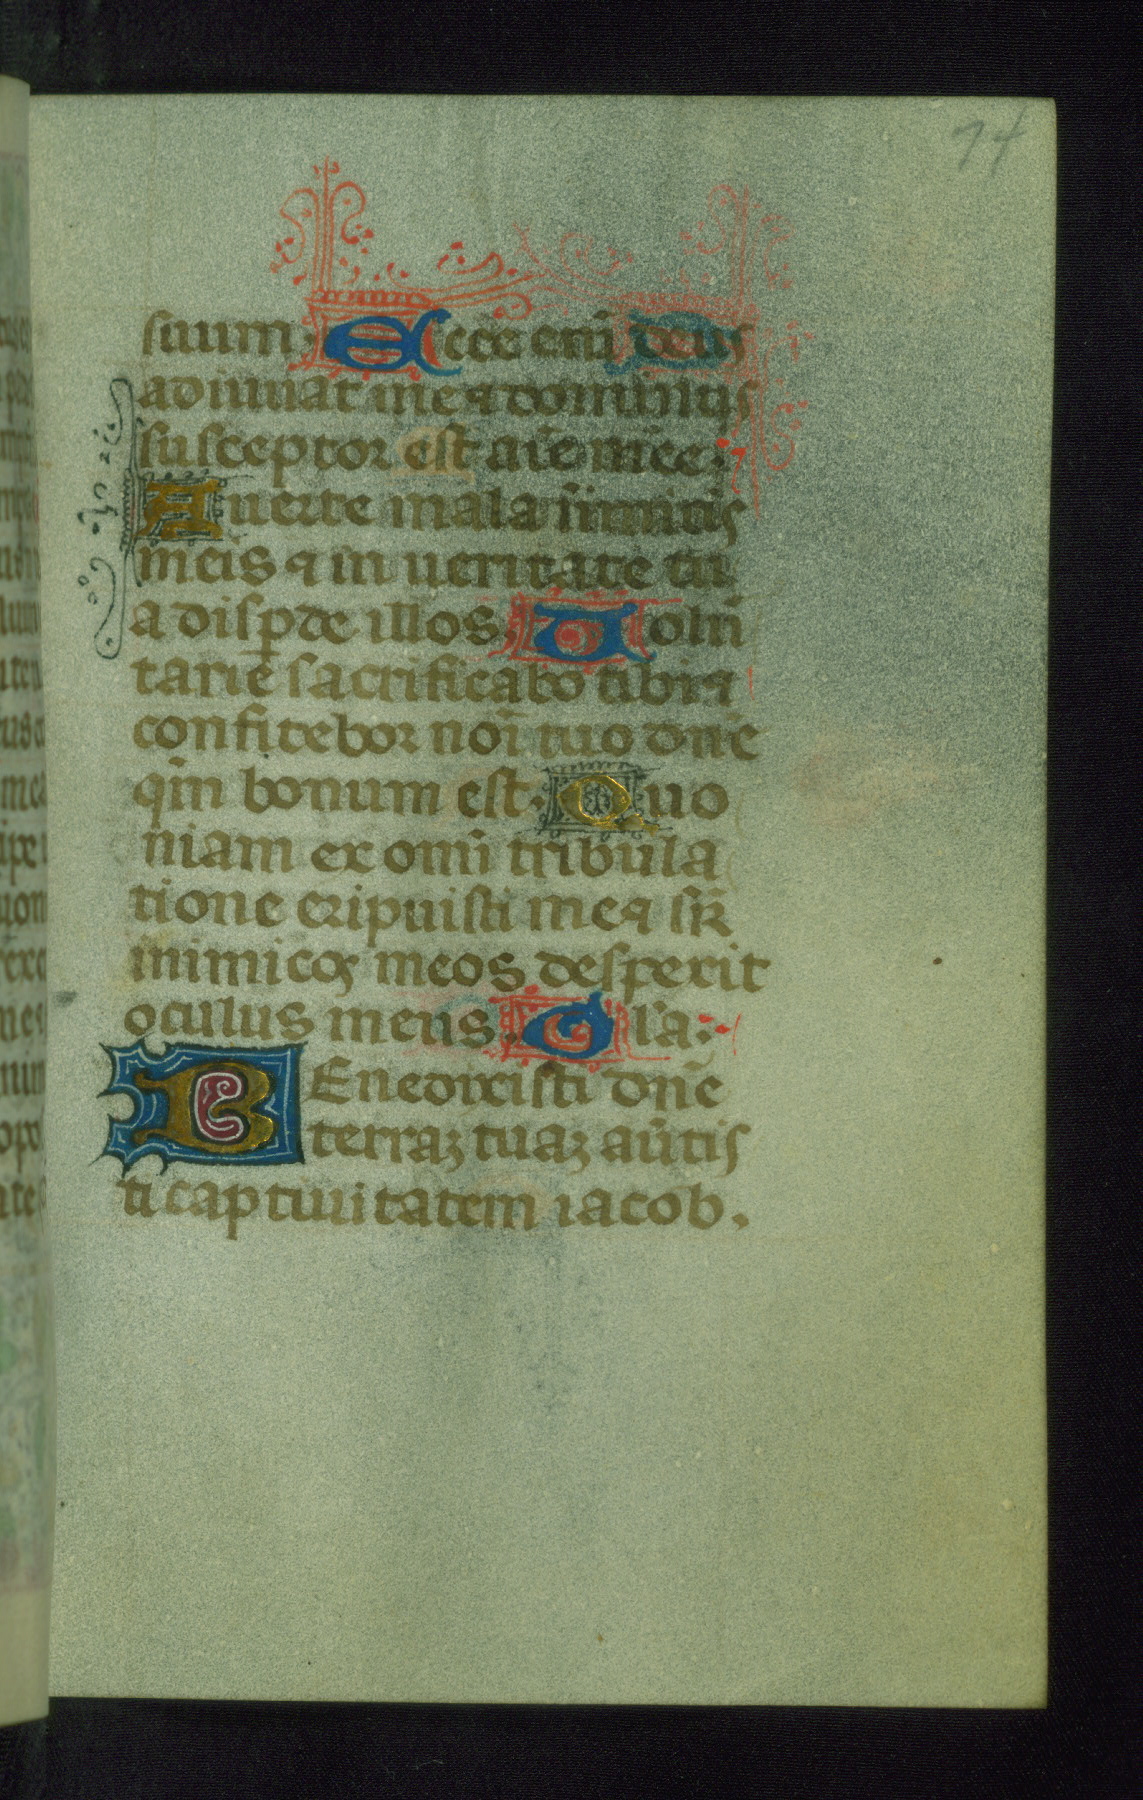 74
suum. Ecce eni̅ deus
adiuuat me ⁊ dominus
susceptor est ai̅e mee.
Auerte mala inimicis
meis ⁊ in ueritate tu
a disp̱de illos. Uolu̅
tarie sacrificabo tibi ⁊
confitebor noi̅ tuo dn̅e
qm̅ bonum est. Quo
niam ex omi̅ tribula
tione eripuisti me ⁊ sr̅
inimicos meos despexit
oculus meus. Gl'a.
Benedixisti dn̅e
terraꝫ tuaꝫ au̅tis
ti captiuitatem iacob.